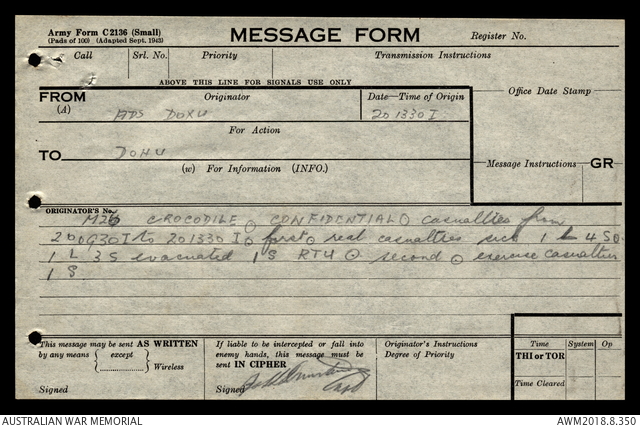 Army Form C 2136 (Small)
(Pads of 100) (Adapted Sept. 1943)
MESSAGE FORM
Register No.
Call Srl. No. Priority Transmission Instructions
ABOVE THIS LINE FOR SIGNALS USE ONLY
FROM (A) Originator Date—Time of Origin
Office Date Stamp
ADS DOXU 201330 I
For Action
TO DOHU
(w) For Information (INFO.)
Message Instructions GR
ORIGINATOR'S No.
M26 CROCODILE ⊙ CONFIDENTIAL ⊙ casualties from
200930I to 201330 I ⊙ first ⊙ real casualties sick 1 L 4 S ⊙
1 L 3 S evacuated 1 S RTU ⊙ second ⊙ exercise casualties
1 S
This message may be sent AS WRITTEN
by any means { except } Wireless
Signed
If liable to be intercepted or fall into
enemy hands, this message must be
sent IN CIPHER
Signed Capt
Originator's Instructions
Degree of Priority
Time System Op
THI or TOR
Time Cleared
AUSTRALIAN WAR MEMORIAL AWM2018.8.350